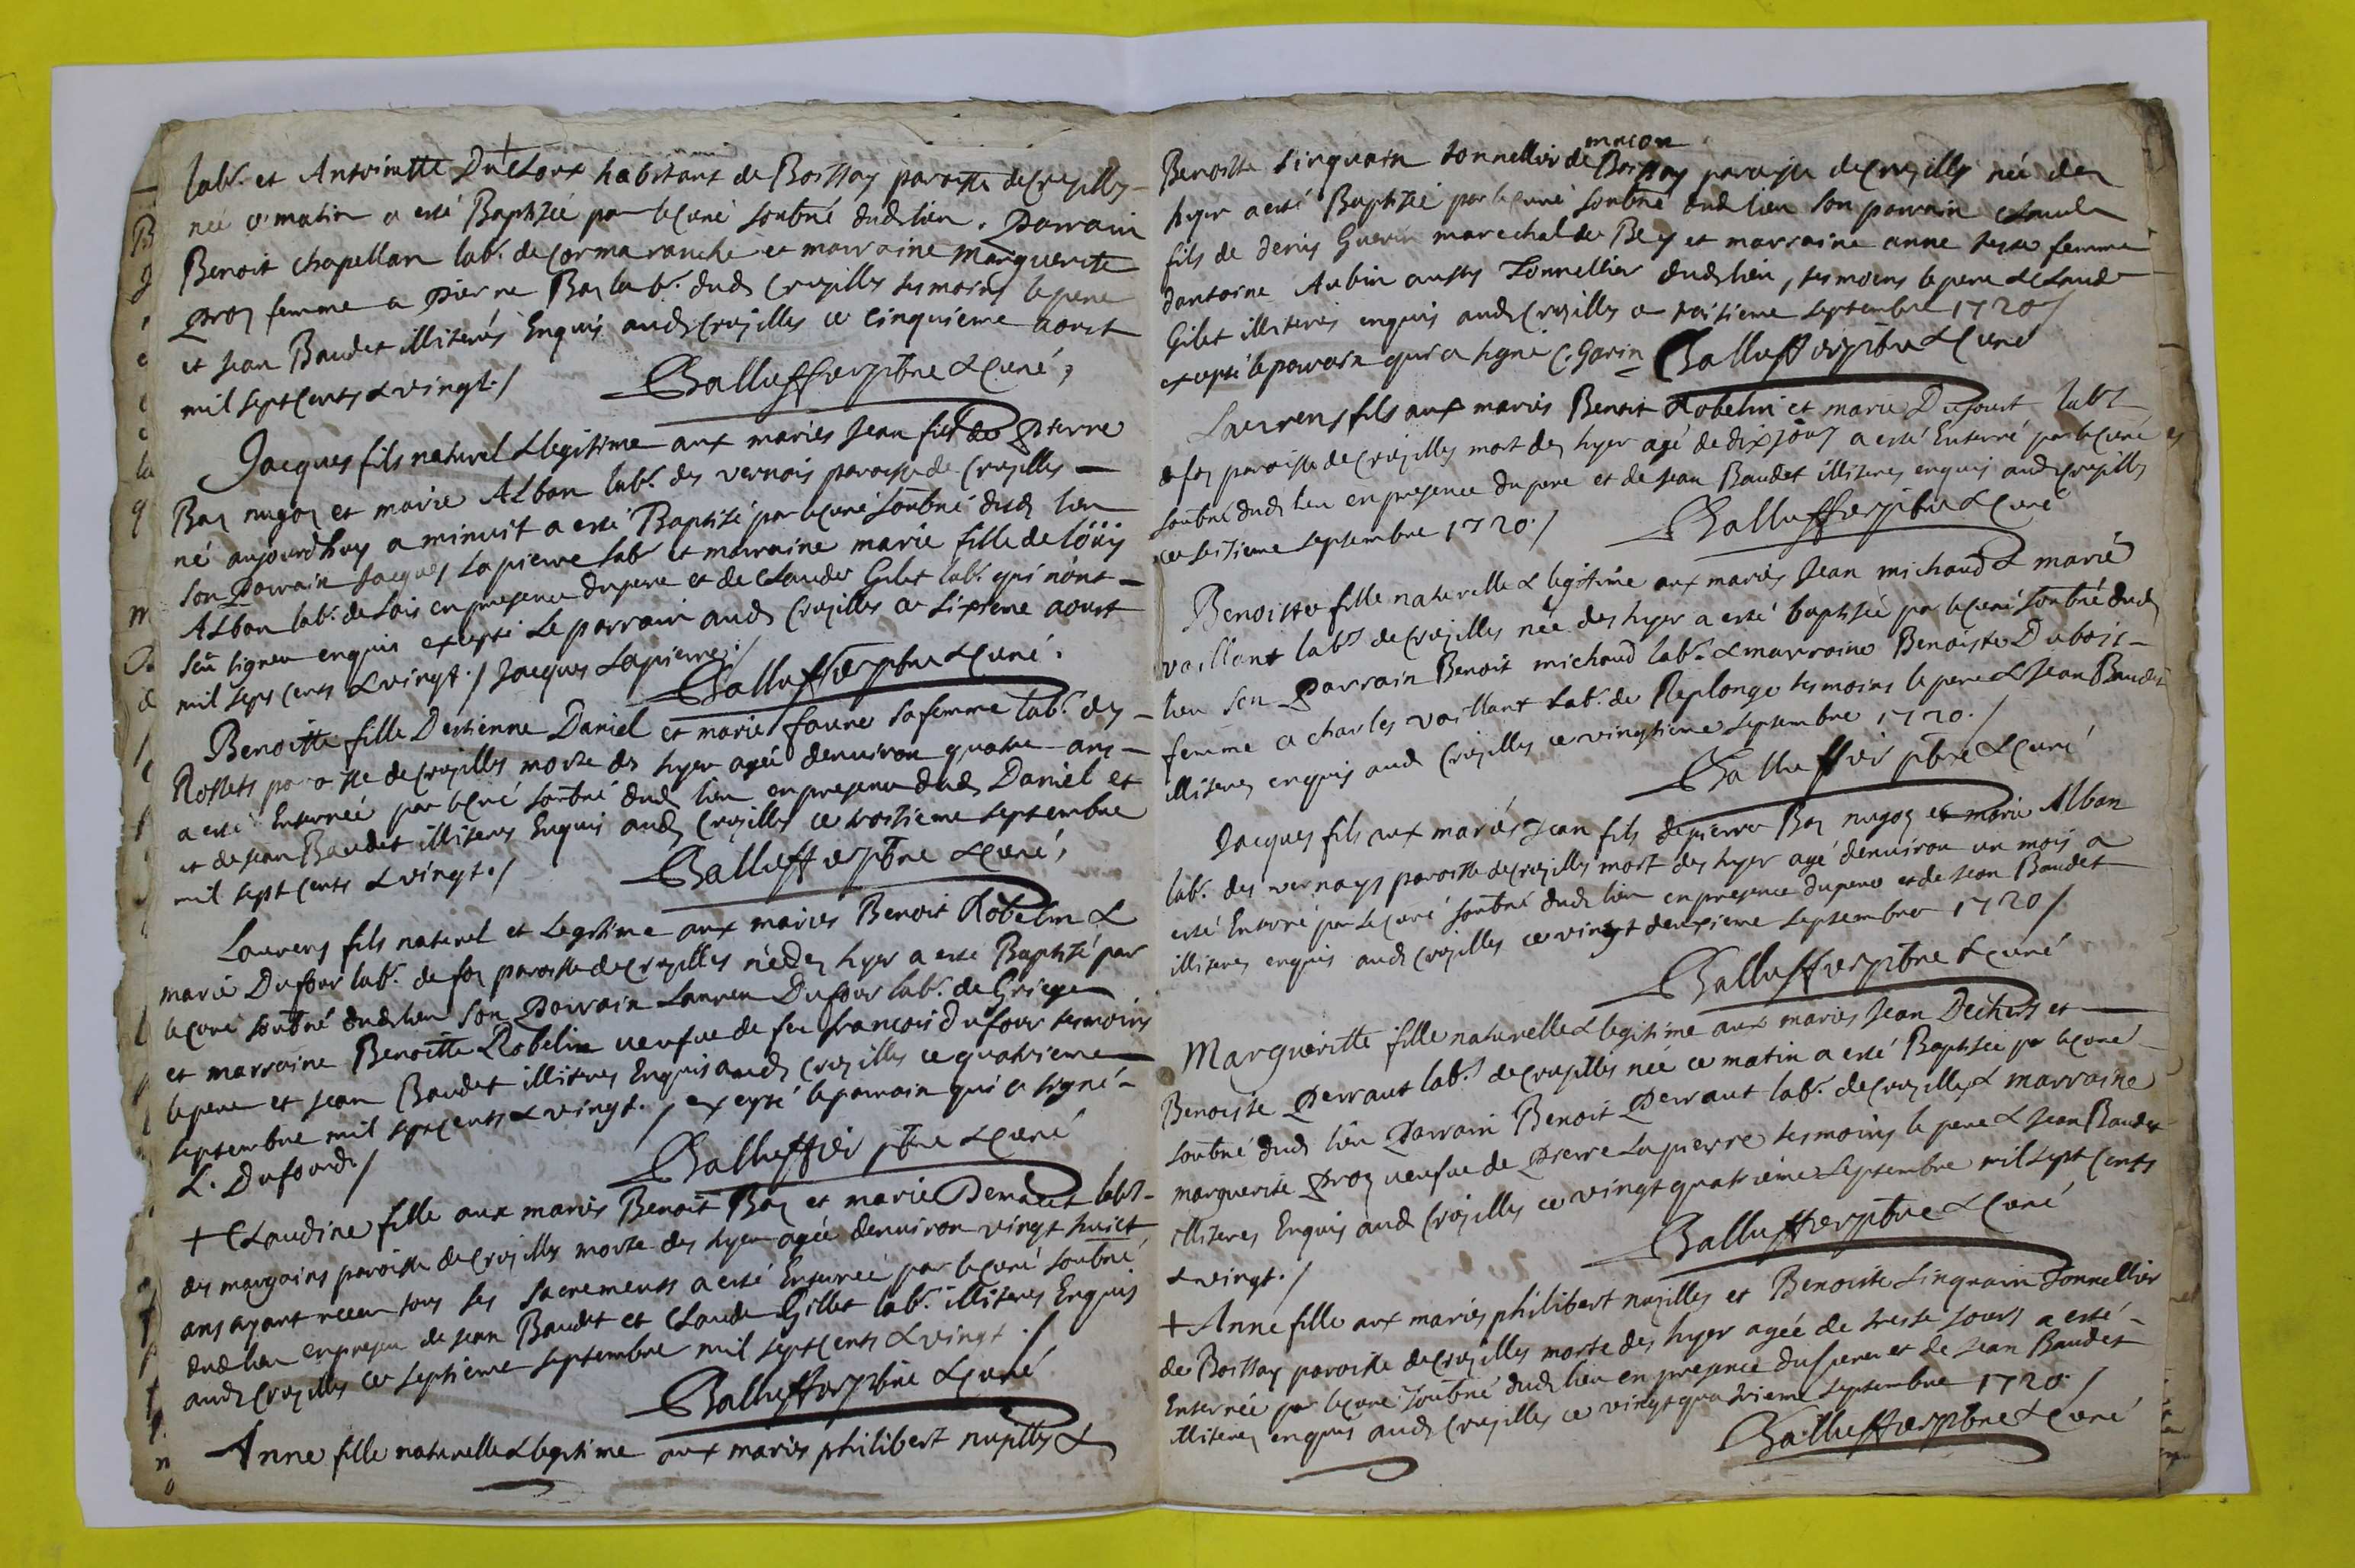 labr. et Antoinette Ducloux habitant de Boissay paroisse de crozilles
née ce matin a esté Baptizée par le curé soubné dud lieu. Parrain
Benoit chapellan labr. de cormaranche et marraine Marguerite
Proz femme a Pierre Baz labr. dud Crozilles tesmoins le pere
et jean Baudet illiterés Enquis aud Crozilles ce cinquieme aoust
mil sept Cents & vingt./ pbre & Curé,
Jacques fils naturel & legitime aux mariés Jean fils de Pierre
Baz nugoz et marie Alban labr. des vernois paroisse de Crozilles
né aujourdhuy a minuit a esté Baptisé par le curé soubné dud lieu
son Parrain Jacques Lapierre labr. et marraine marie fille de löuys
Alban labr. de Lais en presence du pere et de Claude Gilet labr. qui n'ont
sçû signer enquis excepté Le parrain aud Crozilles ce sixieme aoust
mil sept Cents & vingt./ Jacques Lapierre./
pbre & Curé.
Benoitte fille Destienne Daniel et marie faure sa femme labr. des
Rossets paroisse de crozilles morte des hyer agée denviron quatre ans
a esté Enterrée par le curé soubné dud lieu en presence dud Daniel et
et de jean Baudet illiteres Enquis aud Crozilles ce troisieme septembre
mil sept Cents & vingt./ pbre & Curé,
Laurens fils naturel et Legitime aux mariés Benoit Robelin &
marie Dufour labr. de foz paroisse de crozilles né dez hyer a esté Baptisé par
le curé soubné dud lieu son Parrain Laurens Dufour labr. de Griege
et marraine Benoitte Robelin veufve de feu francois dufour tesmoins
le pere et jean Baudet illiteres Enquis aud Crozilles ce quatrieme
septembre mil sept cents & vingt./ excepté le parrain qui a signé
L. Dufour/ pbre & Curé
+ Claudine fille aux mariés Benoit Baz et marie Perraut labrs
des margoins paroisse de Crozilles morte des hyer agée denviron vingt huict
ans ayant receu tous ses sacrements a esté Enterrée par le curé soubné
dud lieu en presence de jean Baudet et Claude Gillet labr. illiteres Enquis
aud Crozilles ce septieme septembre mil sept Cents & vingt./
pbre & Curé
Anne fille naturelle & legitime aux mariés philibert nuzilles &
macon
Benoiste Singuain tonnellier de Boissay paroisse de Crozilles née dez
hyer a esté Baptizée par le curé soubné dud lieu son parrain Claude
fils de denis Guerin marechal de Bey et marraine anne femme
dantoine Aubin aussy Tonnellier dud lieu, tesmoins le pere & Claude
Gilet illiteres enquis aud Crozilles ce treisieme septembre 1720/
excepté le parrain qui a signé C. Garin pbre & Curé
Laurens fils aux mariés Benoit Robelin et marie Dufour labrs
de foz paroisse de Crozilles mort dez hyer agé de dix jours a esté Enterré par le curé
soubné dud lieu en presence du pere et de jean Baudet illiteres enquis aud Crozilles
ce septembre 1720./ pbre & Curé
Benoiste fille naturelle & legitime aux mariés Jean michaud & marie
vaillant labrs de Crozilles née des hyer a esté baptisée par le curé soubné dud
lieu son Parrain Benoit michaud labr. & marraine Benoiste Dubois
femme a charles vaillant Labr. de Replonge tesmoins le pere & Jean Baudet
illiteres enquis aud Crozilles ce vingtieme septembre 1720./
pbre & Curé
Jacques fils aux mariés Jean fils de pierre Baz nugoz et marie Alban
labr. des vernays paroisse de crozilles mort des hyer agé denviron un mois a
esté Enterré par Le curé soubné dud lieu en presence du pere et de jean Baudet
illiteres enquis aud Crozilles ce vingt deuxieme septembre 1720/
pbre & curé
Margueritte fille naturelle & legitime aux mariés Jean et
Benoiste Perraut labrs de crozilles née ce matin a esté Baptisée par le curé
soubné dud lieu Parrain Benoit Perraut labr. de crozilles & marraine
marguerite Proz veufve de Pierre Lapierre tesmoins le pere & jean Baudet
illiteres Enquis aud Crozilles ce vingt quatrieme septembre mil sept Cents
& vingt./ pbre & Curé
+ Anne fille aux mariés philibert nuzilles et Benoiste Singuain Tonnellier
de Boissay paroisse de Crozilles morte des hyer agée de treise jours a esté
Enterrée par le curé soubné dud lieu en presence du pere et de jean Baudet
illiteres enquis aud Crozilles ce vingt quatrieme septembre 1720./
pbre & Curé